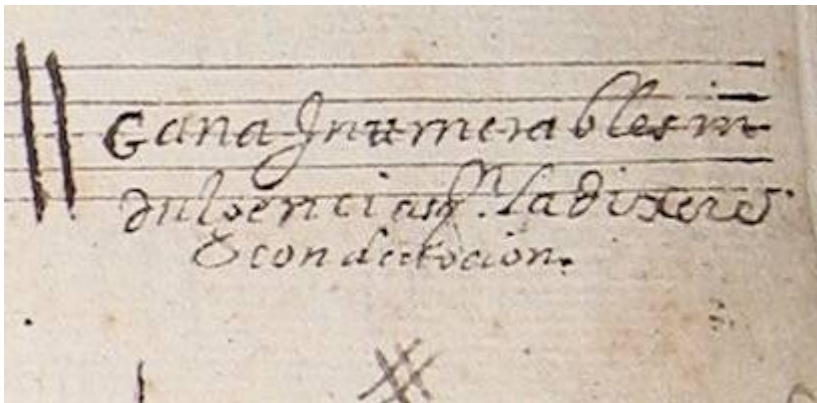 Gana Inumerables in
dulsencias qn. la dixere
con devocion.